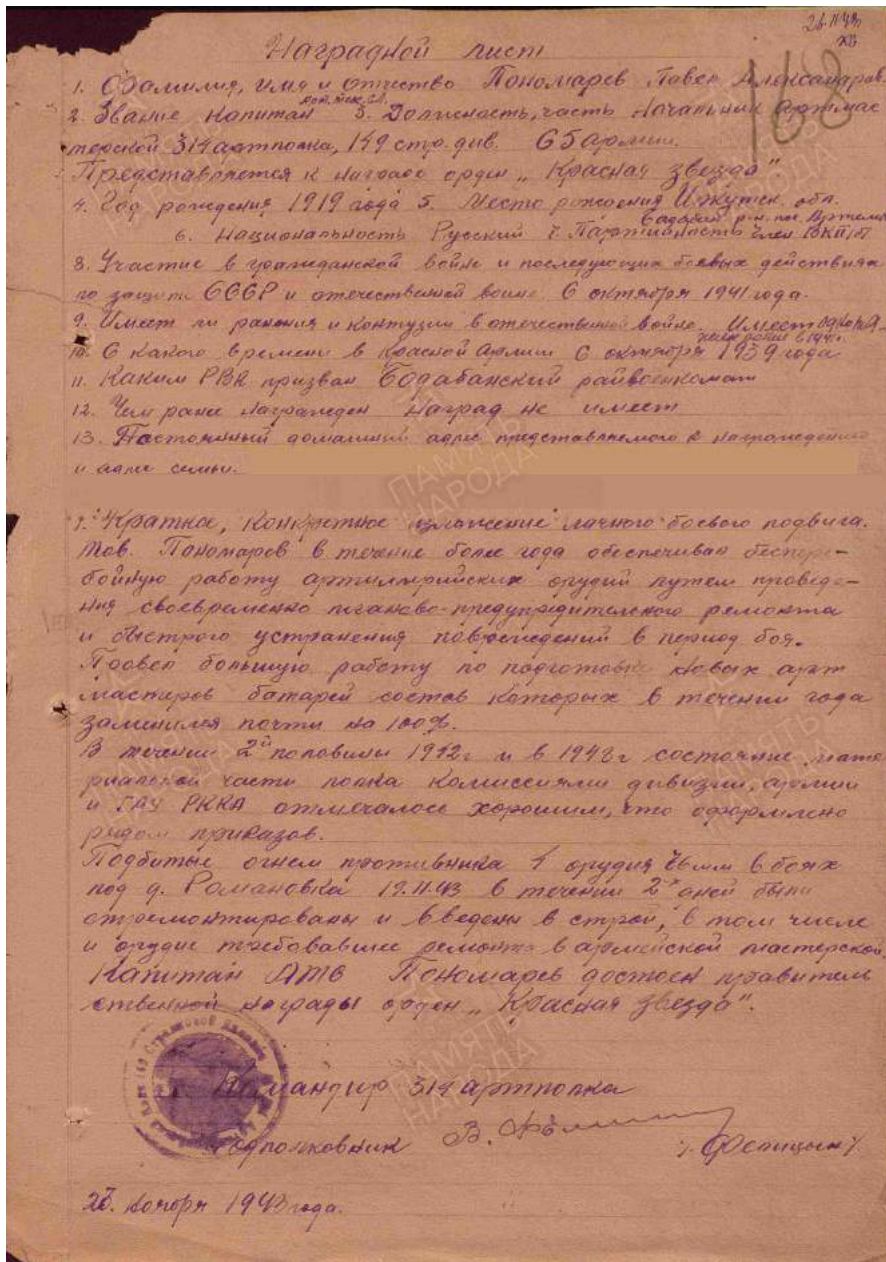 26.11.43
168
Наградной лист
1. Фамилия, имя и отчество Пономарев Павел Александров.
2. Звание Капитан 3. Должность, часть Начальник артмас
терской 314 артполка, 149 стр. див. 65 армии.
Представляется к награде орден „Красная звезда".
4. Год рождения 1919 года 5. Место рождения Иркутск. обл.
Бодайбин р-н. пос. Артемовск
6. Национальность Русский 7. Партийность Член ВКП/б/
8. Участие в гражданской войне и последующих боевых действиях
по защите СССР и отечественной войне С октября 1941 года.
9. Имеет ли ранения и контузии в отечественной войне. Имеет одно
ранение в 1941 г.
10. С какого времени в Красной Армии С октября 1939 года
11. Каким РВК призван Бодабанский райвоенкомат
12. Чем ранее награжден наград не имеет
13. Постоянный домашний адрес представляемого к награждению
и адрес семьи.
1. Краткое, конкретное изложение личного боевого подвига.
Тов. Пономарев в течение более года обеспечивал беспере-
бойную работу артиллерийских орудий путем проведе-
ния своевременно планово-предупредительского ремонта
и быстрого устранения повреждений в период боя.
Провел большую работу по подготовке новых арт
мастеров батарей состав которых в течении года
заменился почти на 100%.
В течении 2й половины 1942 г и в 1943 г состояние мате
риальной части полка комиссиями дивизии, армии
и ГАУ РККА отмечалось хорошим, что оформлено
рядом приказов.
Подбитые огнем противника 4 орудия 76 мм в боях
под д. Романовка 19.11.43 в течении 2х дней были
отремонтированы и введены в строй, в том числе
и орудие требовавшее ремонта в армейской мастерской.
Капитан АТС Пономарев достоен правитель
ственной награды орден „Красная звезда".
Командир 314 артполка
Подполковник
26. ноября 1943 года.
ПАМЯТЬ НАРОДА